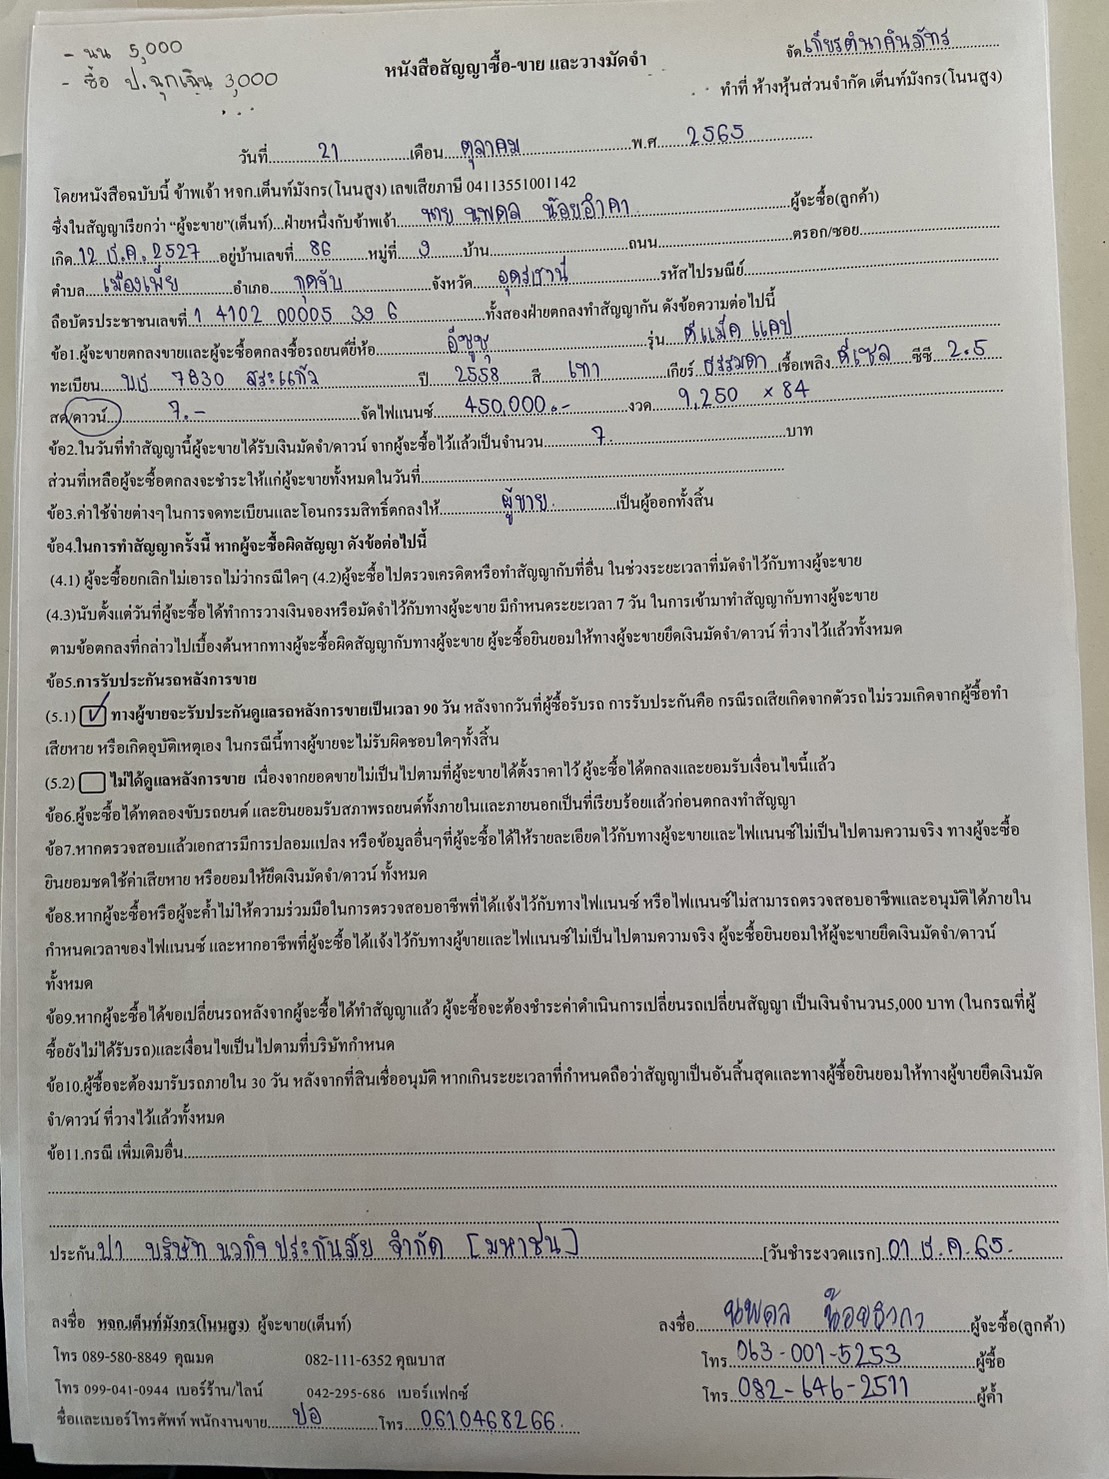 - นน 5,000
- ซื้อ ป.ฉุกเฉิน 3,000
จัด เกียรตินาคินภัทร
หนังสือสัญญาซื้อ-ขาย และวางมัดจำ
ทำที่ ห้างหุ้นส่วนจำกัด เต็นท์มังกร(โนนสูง)
วันที่ 21 เดือน ตุลาคม พ.ศ 2565
โดยหนังสือฉบับนี้ ข้าพเจ้า หจก.เต็นท์มังกร(โนนสูง) เลขเสียภาษี 04113551001142
ซึ่งในสัญญาเรียกว่า "ผู้จะขาย"(เต็นท์)...ฝ่ายหนึ่งกับข้าพเจ้า นาย นพดล น้อยอำคา ผู้จะซื้อ(ลูกค้า)
เกิด 12 ธ.ค. 2527 อยู่บ้านเลขที่ 86 หมู่ที่ 9 บ้าน ถนน ตรอก/ซอย
ตำบล เมืองเพีย อำเภอ กุดจับ จังหวัด อุดรธานี รหัสไปรษณีย์
ถือบัตรประชาชนเลขที่ 1 4102 00005 39 6 ทั้งสองฝ่ายตกลงทำสัญญากัน ดังข้อความต่อไปนี้
ข้อ1.ผู้จะขายตกลงขายและผู้จะซื้อตกลงซื้อรถยนต์ยี่ห้อ อีซูซุ รุ่น ดีแม็ค แคป
ทะเบียน บธ 7830 สระแก้ว ปี 2558 สี เทา เกียร์ ธรรมดา เชื้อเพลิง ดีเซล ซีซี 2.5
สด/ดาวน์ 7.- จัดไฟแนนซ์ 450,000.- งวด 9,250 x 84
ข้อ2.ในวันที่ทำสัญญานี้ผู้จะขายได้รับเงินมัดจำ/ดาวน์ จากผู้จะซื้อไว้แล้วเป็นจำนวน 7. บาท
ส่วนที่เหลือผู้จะซื้อตกลงจะชำระให้แก่ผู้จะขายทั้งหมดในวันที่
ข้อ3.ค่าใช้จ่ายต่างๆในการจดทะเบียนและโอนกรรมสิทธิ์ตกลงให้ ผู้ขาย เป็นผู้ออกทั้งสิ้น
ข้อ4.ในการทำสัญญาครั้งนี้ หากผู้จะซื้อผิดสัญญา ดังข้อต่อไปนี้
(4.1) ผู้จะซื้อยกเลิกไม่เอารถไม่ว่ากรณีใดๆ (4.2)ผู้จะซื้อไปตรวจเครดิตหรือทำสัญญากับที่อื่น ในช่วงระยะเวลาที่มัดจำไว้กับทางผู้จะขาย
(4.3)นับตั้งแต่วันที่ผู้จะซื้อได้ทำการวางเงินจองหรือมัดจำไว้กับทางผู้จะขาย มีกำหนดระยะเวลา 7 วัน ในการเข้ามาทำสัญญากับทางผู้จะขาย
ตามข้อตกลงที่กล่าวไปเบื้องต้นหากทางผู้จะซื้อผิดสัญญากับทางผู้จะขาย ผู้จะซื้อยินยอมให้ทางผู้จะขายยึดเงินมัดจำ/ดาวน์ ที่วางไว้แล้วทั้งหมด
ข้อ5.การรับประกันรถหลังการขาย
(5.1) ทางผู้ขายจะรับประกันดูแลรถหลังการขายเป็นเวลา 90 วัน หลังจากวันที่ผู้ซื้อรับรถ การรับประกันคือ กรณีรถเสียเกิดจากตัวรถไม่รวมเกิดจากผู้ซื้อทำ
เสียหาย หรือเกิดอุบัติเหตุเอง ในกรณีนี้ทางผู้ขายจะไม่รับผิดชอบใดๆทั้งสิ้น
(5.2) ไม่ได้ดูแลหลังการขาย เนื่องจากยอดขายไม่เป็นไปตามที่ผู้จะขายได้ตั้งราคาไว้ ผู้จะซื้อได้ตกลงและยอมรับเงื่อนไขนี้แล้ว
ข้อ6.ผู้จะซื้อได้ทดลองขับรถยนต์ และยินยอมรับสภาพรถยนต์ทั้งภายในและภายนอกเป็นที่เรียบร้อยแล้วก่อนตกลงทำสัญญา
ข้อ7.หากตรวจสอบแล้วเอกสารมีการปลอมแปลง หรือข้อมูลอื่นๆที่ผู้จะซื้อได้ให้รายละเอียดไว้กับทางผู้จะขายและไฟแนนซ์ไม่เป็นไปตามความจริง ทางผู้จะซื้อ
ยินยอมชดใช้ค่าเสียหาย หรือยอมให้ยึดเงินมัดจำ/ดาวน์ ทั้งหมด
ข้อ8.หากผู้จะซื้อหรือผู้จะค้ำไม่ให้ความร่วมมือในการตรวจสอบอาชีพที่ได้แจ้งไว้กับทางไฟแนนซ์ หรือไฟแนนซ์ไม่สามารถตรวจสอบอาชีพและอนุมัติได้ภายใน
กำหนดเวลาของไฟแนนซ์ และหากอาชีพที่ผู้จะซื้อได้แจ้งไว้กับทางผู้ขายและไฟแนนซ์ไม่เป็นไปตามความจริง ผู้จะซื้อยินยอมให้ผู้จะขายยึดเงินมัดจำ/ดาวน์
ทั้งหมด
ข้อ9.หากผู้จะซื้อได้ขอเปลี่ยนรถหลังจากผู้จะซื้อได้ทำสัญญาแล้ว ผู้จะซื้อจะต้องชำระค่าดำเนินการเปลี่ยนรถเปลี่ยนสัญญา เป็นเงินจำนวน5,000 บาท (ในกรณที่ผู้
ซื้อยังไม่ได้รับรถ)และเงื่อนไขเป็นไปตามที่บริษัทกำหนด
ข้อ10.ผู้ซื้อจะต้องมารับรถภายใน 30 วัน หลังจากที่สินเชื่ออนุมัติ หากเกินระยะเวลาที่กำหนดถือว่าสัญญาเป็นอันสิ้นสุดและทางผู้ซื้อยินยอมให้ทางผู้ขายยึดเงินมัด
จำ/ดาวน์ ที่วางไว้แล้วทั้งหมด
ข้อ11.กรณี เพิ่มเติมอื่น
ประกัน ปา บริษัท นวกิจ ประกันภัย จำกัด [มหาชน] [วันชำระงวดแรก] 01 ธ.ค. 65.
ลงชื่อ หจก.เต็นท์มังกร(โนนสูง) ผู้จะขาย(เต็นท์) ลงชื่อ นพดล ผู้จะซื้อ(ลูกค้า)
โทร 089-580-8849 คุณมด 082-111-6352 คุณบาส โทร 063-001-5253 ผู้ซื้อ
โทร 099-041-0944 เบอร์ร้าน/ไลน์ 042-295-686 เบอร์แฟกซ์ โทร 082-646-2511 ผู้ค้ำ
ชื่อและเบอร์โทรศัพท์ พนักงานขาย ปอ โทร 0610468266.